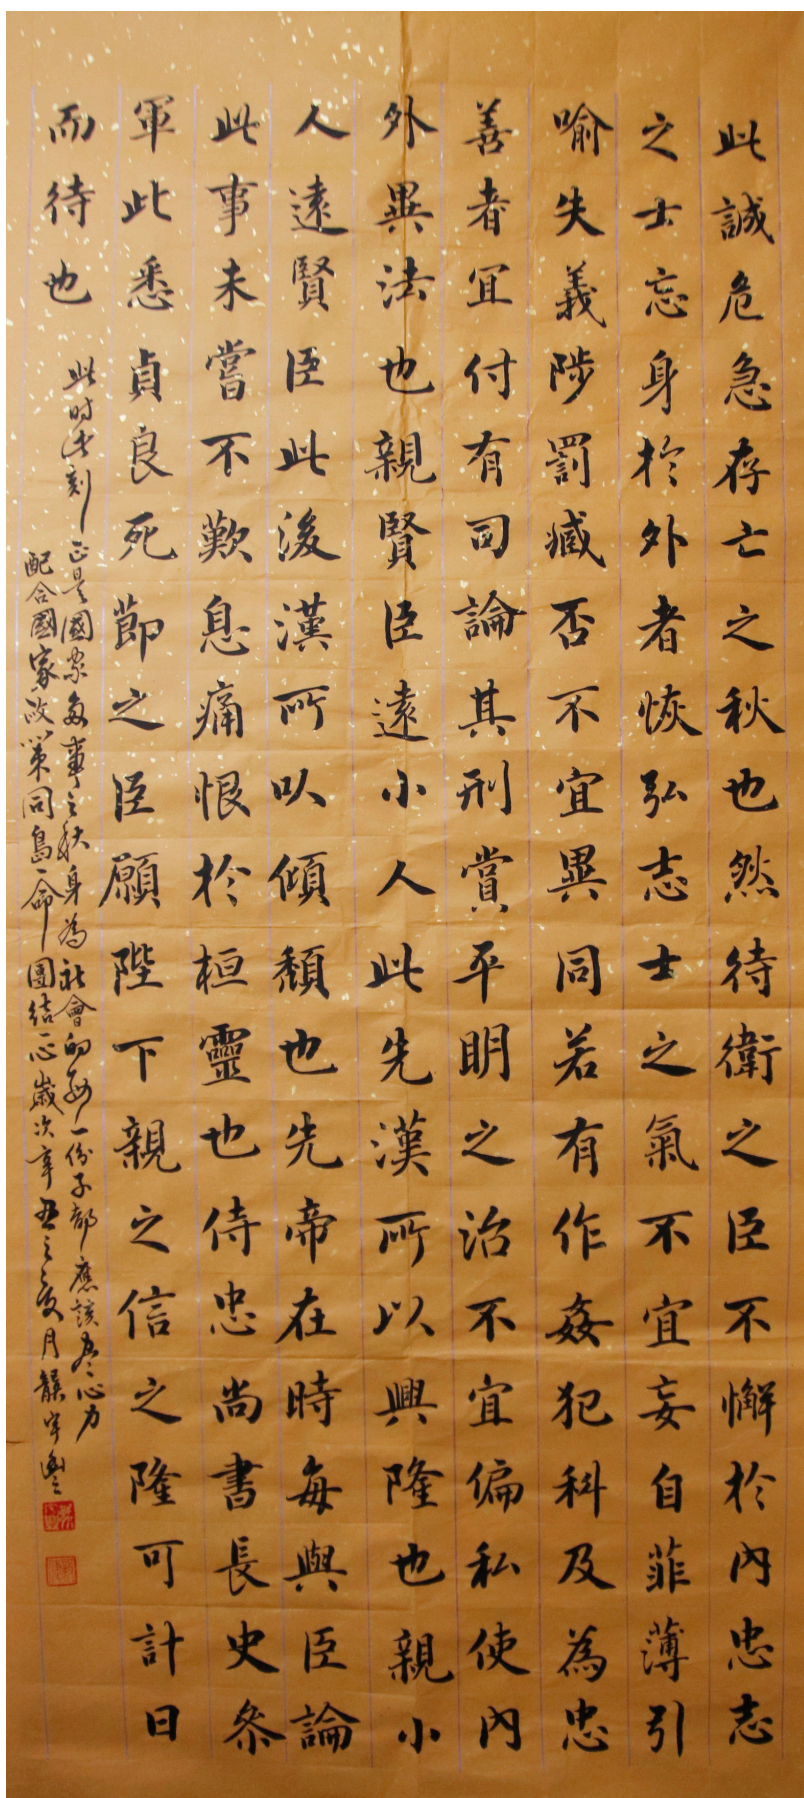 此誠危急存亡之秋也然待衛之臣不懈於內忠志
之士忘身於外者恢弘志士之氣不宜妄自菲薄引
喻失義陟罰臧否不宜異同若有作姦犯科及為忠
善者宜付有司論其刑賞平明之治不宜偏私使內
外異法也親賢臣遠小人此先漢所以興隆也親小
人遠賢臣此後漢所以傾頹也先帝在時每與臣論
此事未嘗不歎息痛恨於桓靈也侍忠尚書長史參
軍此悉貞良死節之臣願陛下親之信之隆可計日
而待也
此時此刻正是國家多事之秋身為社會的每一份子都應該盡心力
配合國家政策同島一命團結一心歲次辛丑之夏月